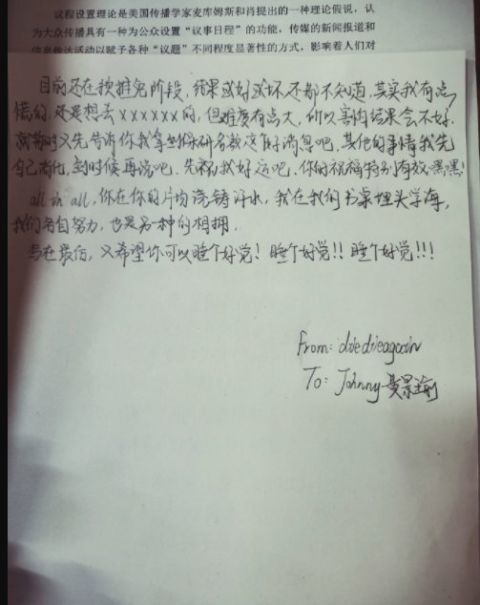 议程设置理论是美国传播学家麦库姆斯和肖提出的一种理论假说，认
为大众传播具有一种为公众设置“议事日程”的功能，传媒的新闻报道和
信息传达活动以赋予各种“议题”不同程度显著性的方式，影响着人们对
目前还在预推免阶段，结果或好或坏还都不知道，其实我有点
慌的，还是想去xxxxxx的，但难度有点大，所以害怕结果会不好.
就暂时先告诉你我拿到保研名额这个好消息吧，其他的事情我先
自己消化，到时候再说吧. 先祝我好运吧，你的祝福特别有效，嘿嘿！
all in all，你在你的片场挥洒汗水，我在我的书桌埋头学海，
我们各自努力，也是另一种的相拥.
写在最后，又希望你可以睡个好觉！睡个好觉！！睡个好觉！！！
From: diedieagain
To: Johnny-黄景瑜